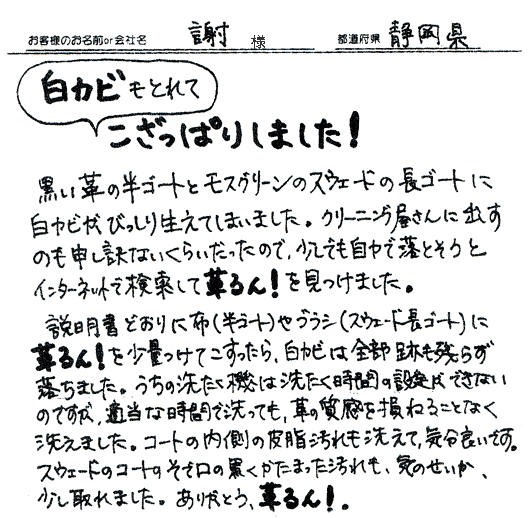 お客様のお名前or会社名 謝 様 都道府県 静岡県
白カビもとれて
こざっぱりしました!
黒い革の半コートとモスグリーンのスウェードの長コートに
白カビがびっしり生えてしまいました。クリーニング屋さんに出す
のも申し訳ないくらいだったので、少しでも自力で落とそうと
インターネットで検索して革るん!を見つけました。
説明書どおりに布(半コート)やブラシ(スウェード長コート)に
革るん!を少量つけてこすったら、白カビは全部跡も残らず
落ちました。うちの洗たく機は洗たく時間の設定ができない
のですが、適当な時間で洗っても、革の質感を損ねることなく
洗えました。コートの内側の皮脂汚れも洗えて、気分良いです。
スウェードのコートのそで口の黒くかたまった汚れも、気のせいか、
少し取れました。ありがとう、革るん!。